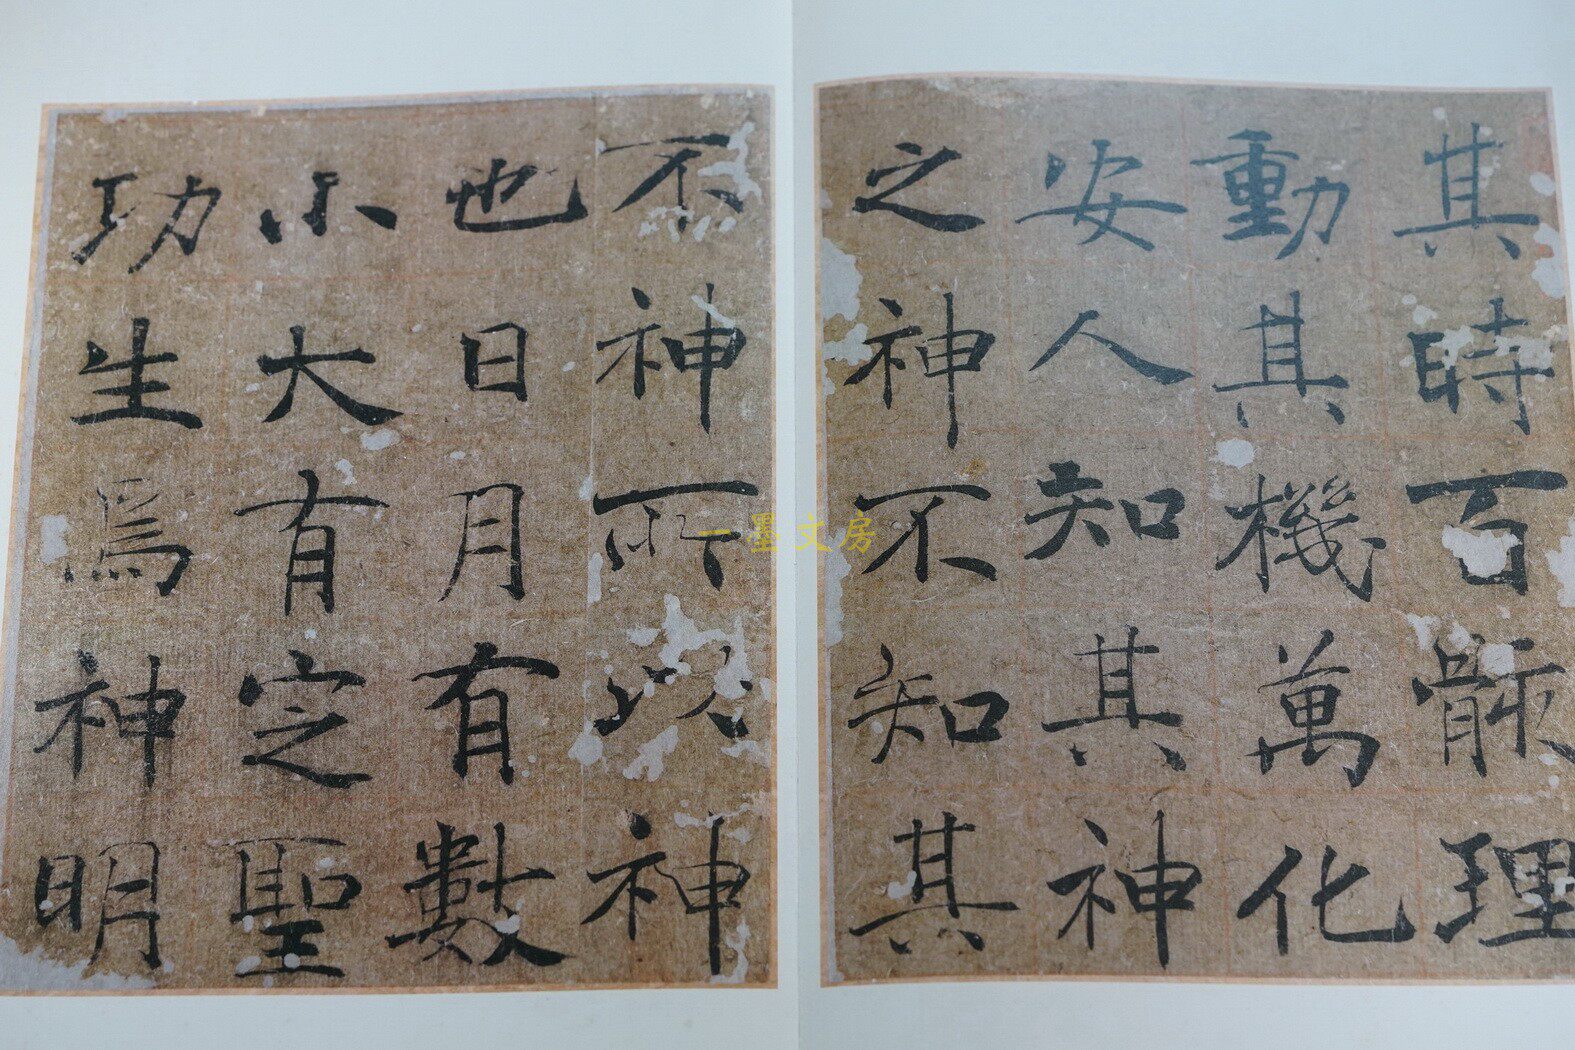 其時百骸理
動其機萬化
安人知其神
之神不知其
不神所以神
也日月有數
小大有定聖
功生焉神明
一墨文房